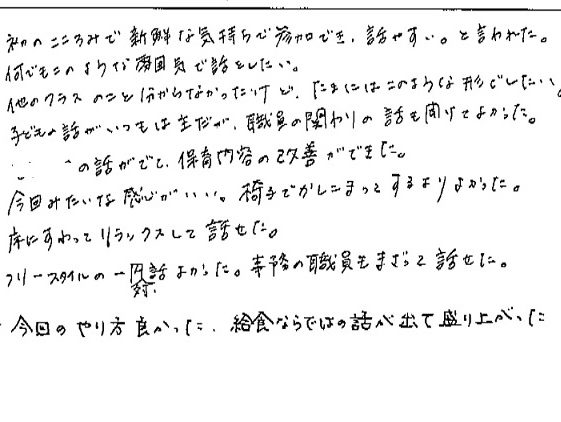 初のこころみで新鮮な気持ちで参加でき、話やすい。と言われた。
何でもこのような雰囲気で話をしたい。
他のクラスのこと分からなかったけど、たまにはこのような形でしたい。
子どもの話がいつもは主だが、職員の関わりの話も聞けてよかった。
の話がでて、保育内容の改善ができた。
今回みたいな感じがいい。椅子でかしこまってするよりよかった。
床にすわってリラックスして話せた。
フリースタイルの一円対話よかった。専務の職員もまざって話せた。
今回のやり方良かった、給食ならではの話が出て盛り上がった